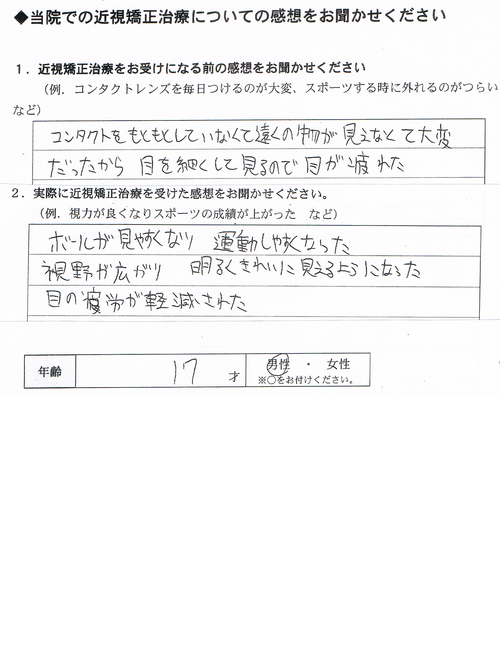 ◆当院での近視矯正治療についての感想をお聞かせください
1．近視矯正治療をお受けになる前の感想をお聞かせください
（例．コンタクトレンズを毎日つけるのが大変、スポーツする時に外れるのがつらい
など）
コンタクトをもともとしていなくて遠くの物が見えなくて大変
だったから 目を細くして見るので目が疲れた
2．実際に近視矯正治療を受けた感想をお聞かせください。
（例．視力が良くなりスポーツの成績が上がった など）
ボールが見やすくなり 運動しやすくなった
視野が広がり 明るくきれいに見えるようになった
目の疲労が軽減された
年齢 17 才 男性 ・ 女性
※○をお付けください。